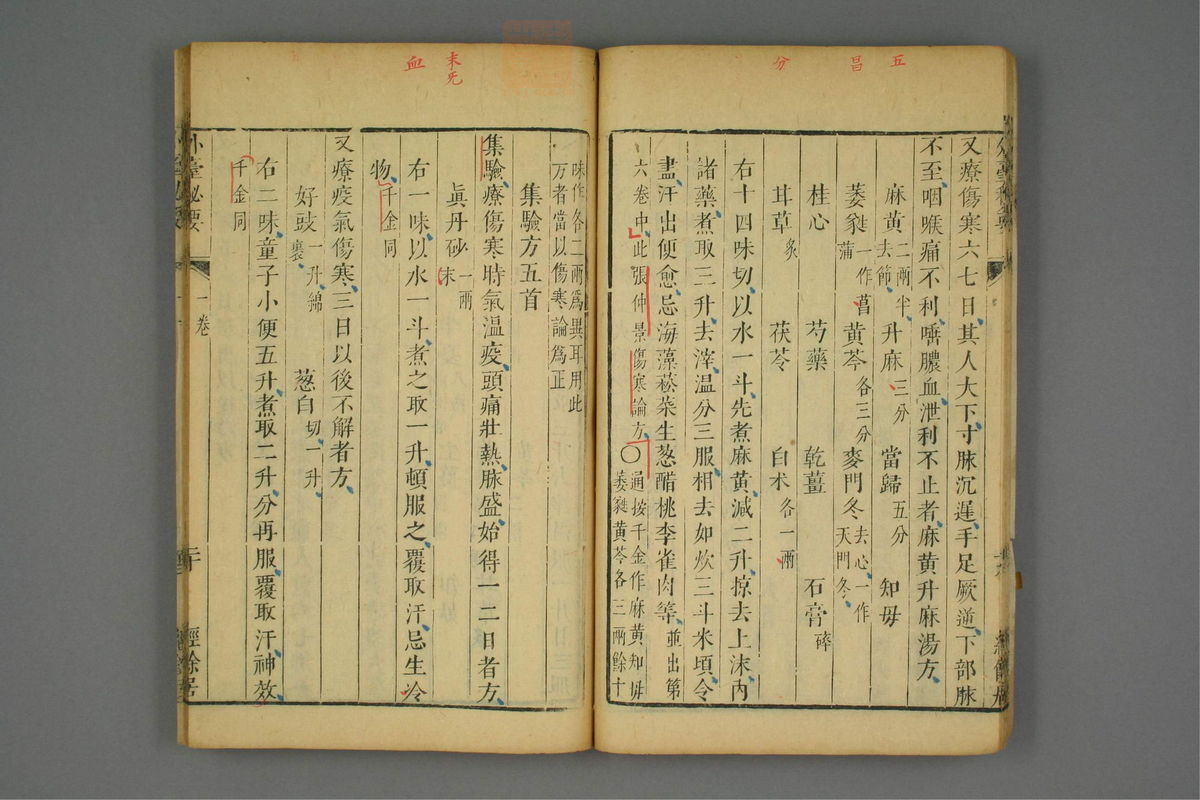 五
昌
分
又療傷寒六七日其人大下寸脉沉遲手足厥逆下部脉
不至咽喉痛不利唾膿血泄利不止者麻黄升麻湯方
麻黄二兩半去節 升麻三分 當歸五分 知母
萎蕤一作菖蒲 黄芩各三分 麥門冬去心一作天門冬
桂心 芍藥 乾薑 石膏碎
甘草炙 茯苓 白术各一兩
右十四味切以水一斗先煮麻黄減二升掠去上沫内
諸藥煮取三升去滓温分三服相去如炊三斗米頃令
盡汗出便愈忌海藻菘菜生葱醋桃李雀肉等並出第
六卷中此張仲景傷寒論方○通按千金作麻黄知母萎蕤黄芩各三兩餘十
末
血
味作各二兩爲異耳用此万者當以傷寒論爲正
集驗方五首
集驗療傷寒時氣温疫頭痛壯熱脉盛始得一二日者方
眞丹砂一兩末
右一味以水一斗煮之取一升頓服之覆取汗忌生冷
物千金同
又療疫氣傷寒三日以後不解者方
好豉一升綿裹 葱白切一升
右二味童子小便五升煮取二升分再服覆取汗神效
千金同
外臺秘要
一卷
經餘居